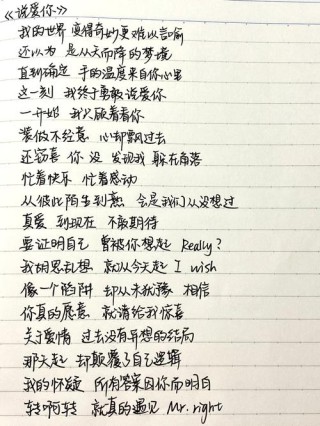 《说爱你》
我的世界 变得奇妙更难以言喻
还以为 是从天而降的梦境
直到确定 手的温度来自你心里
这一刻 我终于勇敢说爱你
一开始 我只顾着看你
装做不经意 心却飘过去
还窃喜 你 没 发现我 躲在角落
忙着快乐 忙着感动
从彼此陌生到熟 会是我们从没想过
真爱 到现在 不敢期待
要证明自己 曾被你想起 Really?
我胡思乱想 就从今天起 I wish
像一个陷阱 却从未犹豫 相信
你真的愿意 就请给我惊喜
关于爱情 过去没有异想的结局
那天起 却颠覆了自己逻辑
我的怀疑 所有答案因你而明白
转啊转 就真的遇见 Mr.right